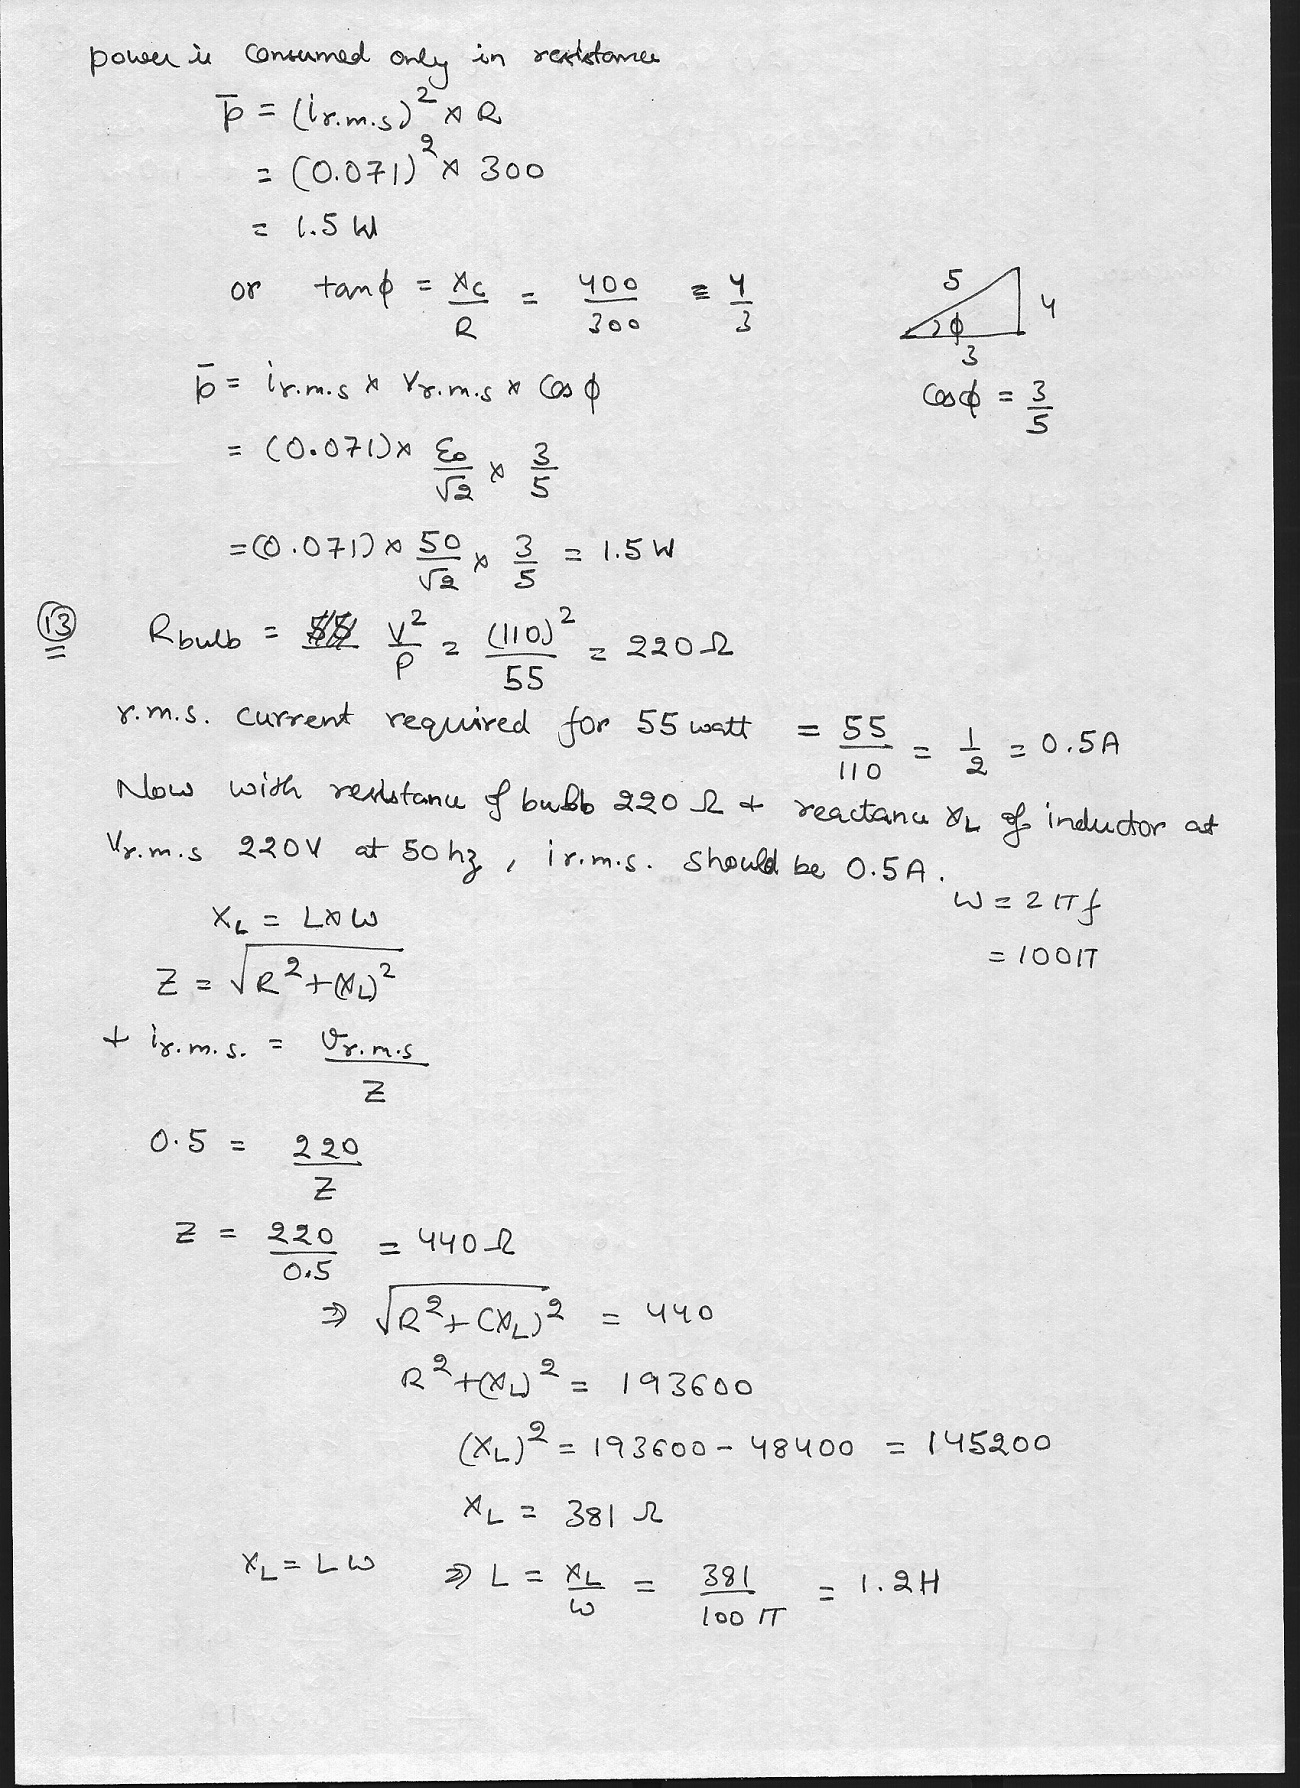 power is consumed only in resistance
p̄ = (i r.m.s)² × R
= (0.071)² × 300
= 1.5 W
or tanϕ = XC/R = 400/300 = 4/3
5
4
ϕ
3
p̄ = i r.m.s × V r.m.s × Cosϕ
Cosϕ = 3/5
= (0.071) × ε₀/√2 × 3/5
= (0.071) × 50/√2 × 3/5 = 1.5 W
13 R bulb = V²/P = (110)²/55 = 220 Ω
r.m.s. current required for 55 watt = 55/110 = 1/2 = 0.5A
Now with resistance of bulb 220 Ω + reactance XL of inductor at
Vr.m.s 220V at 50hz, i r.m.s. should be 0.5A.
ω = 2πf
XL = L×ω
= 100π
Z = √(R² + (XL)²)
+ i r.m.s. = Vr.m.s/Z
0.5 = 220/Z
Z = 220/0.5 = 440 Ω
⇒ √(R² + (XL)²) = 440
R² + (XL)² = 193600
(XL)² = 193600 - 48400 = 145200
XL = 381 Ω
XL = Lω ⇒ L = XL/ω = 381/100π = 1.2H